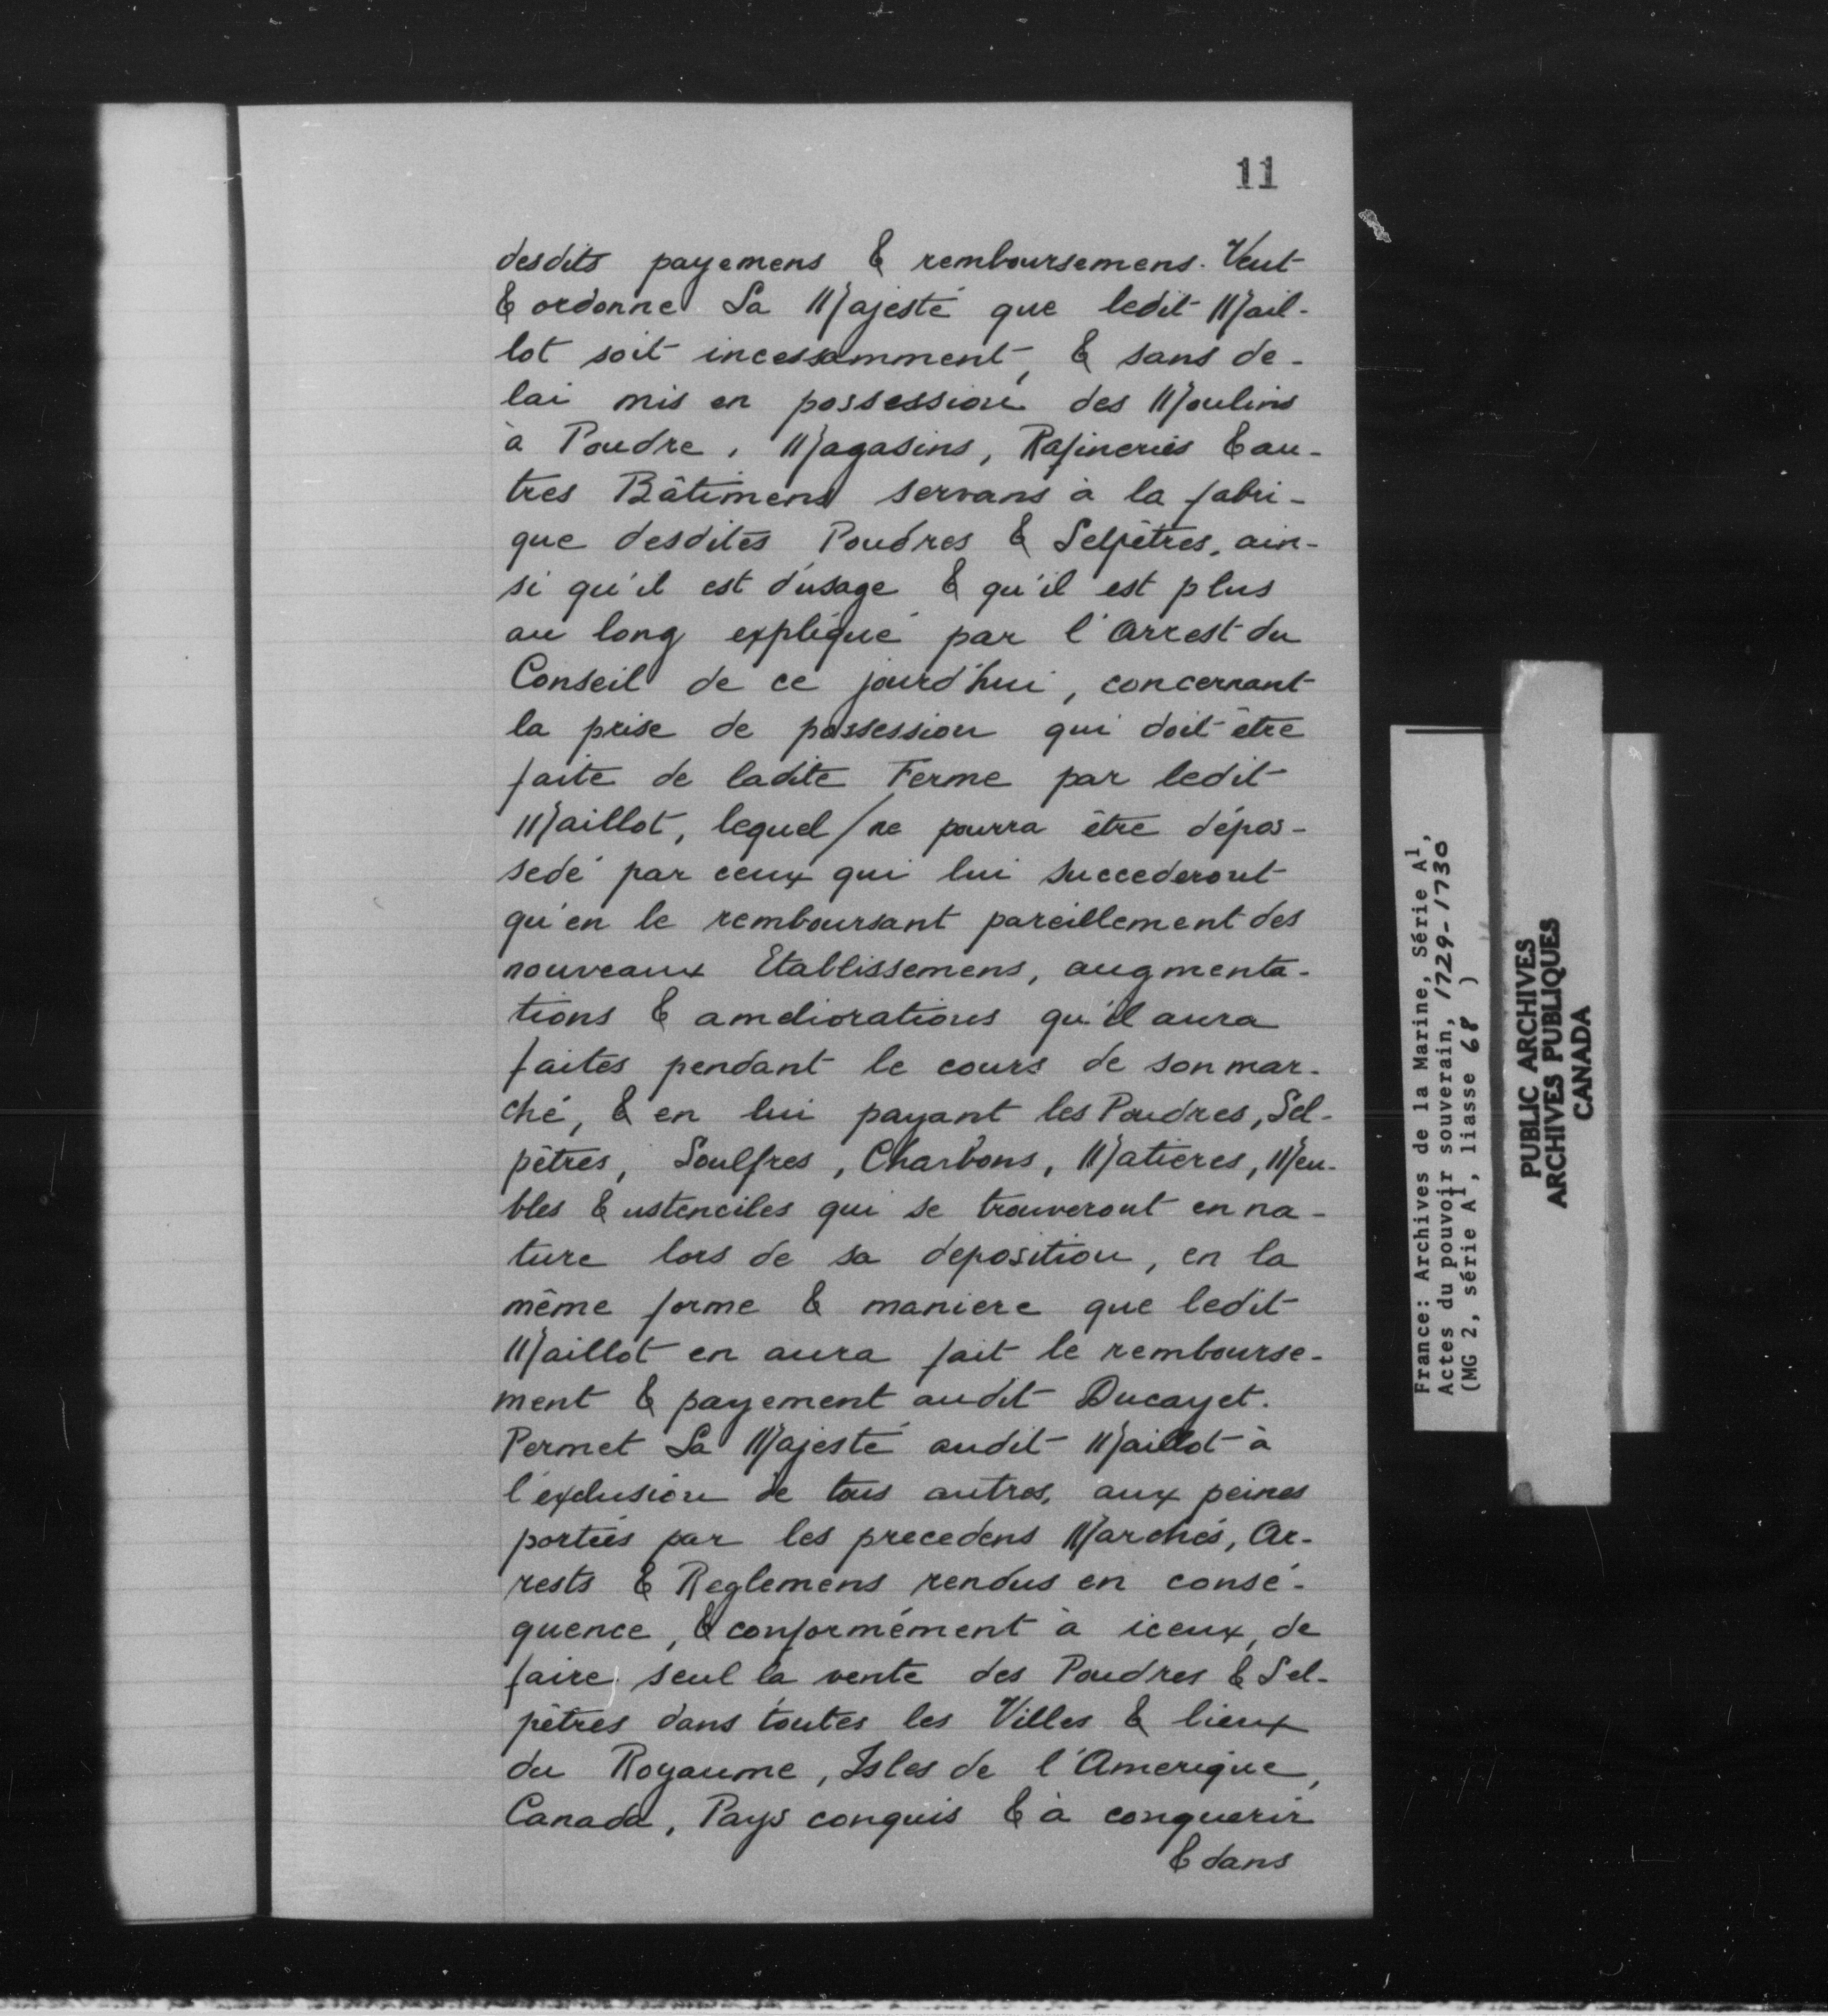 11
desdits payemens & remboursemens. Veut
& ordonne Sa Majesté que ledit Mail-
lot soit incessamment, & sans de-
lai mis en possession des Moulins
à Poudre, Magasins, Rafineries & au-
tres Bâtimens servans à la fabri-
que desdites Poudres & Selpêtres, ain-
si qu'il est d'usage & qu'il est plus
au long expliqué par l'Arrest du
Conseil de ce jourd'hui, concernant
la prise de possession qui doit être
faite de ladite Ferme par ledit
Maillot, lequel ne pourra être dépos-
sedé par ceux qui lui succederont
qu'en le remboursant pareillement des
nouveaux Etablissemens, augmenta-
tions & ameliorations qu'il aura
faites pendant le cours de son mar-
ché, & en lui payant les Poudres, Sel-
pêtres, Soulfres, Charbons, Matieres, Meu-
bles & ustenciles qui se trouveront en na-
ture lors de sa deposition, en la
même forme & maniere que ledit
Maillot en aura fait le rembourse-
ment & payement audit Ducayet.
Permet Sa Majesté audit Maillot à
l'exclusion de tous autres, aux peines
portées par les precedens Marchés, Ar-
rests & Reglemens rendus en consé-
quence, & conformément à iceux, de
faire seul la vente des Poudres & Sel-
pêtres dans toutes les Villes & lieux
du Royaume, Isles de l'Amerique,
Canada, Pays conquis & à conquerir
& dans
France: Archives de la Marine, Série A1,
Actes du pouvoir souverain, 1729-1730
(MG 2, série A1, liasse 68 )
PUBLIC ARCHIVES
ARCHIVES PUBLIQUES
CANADA